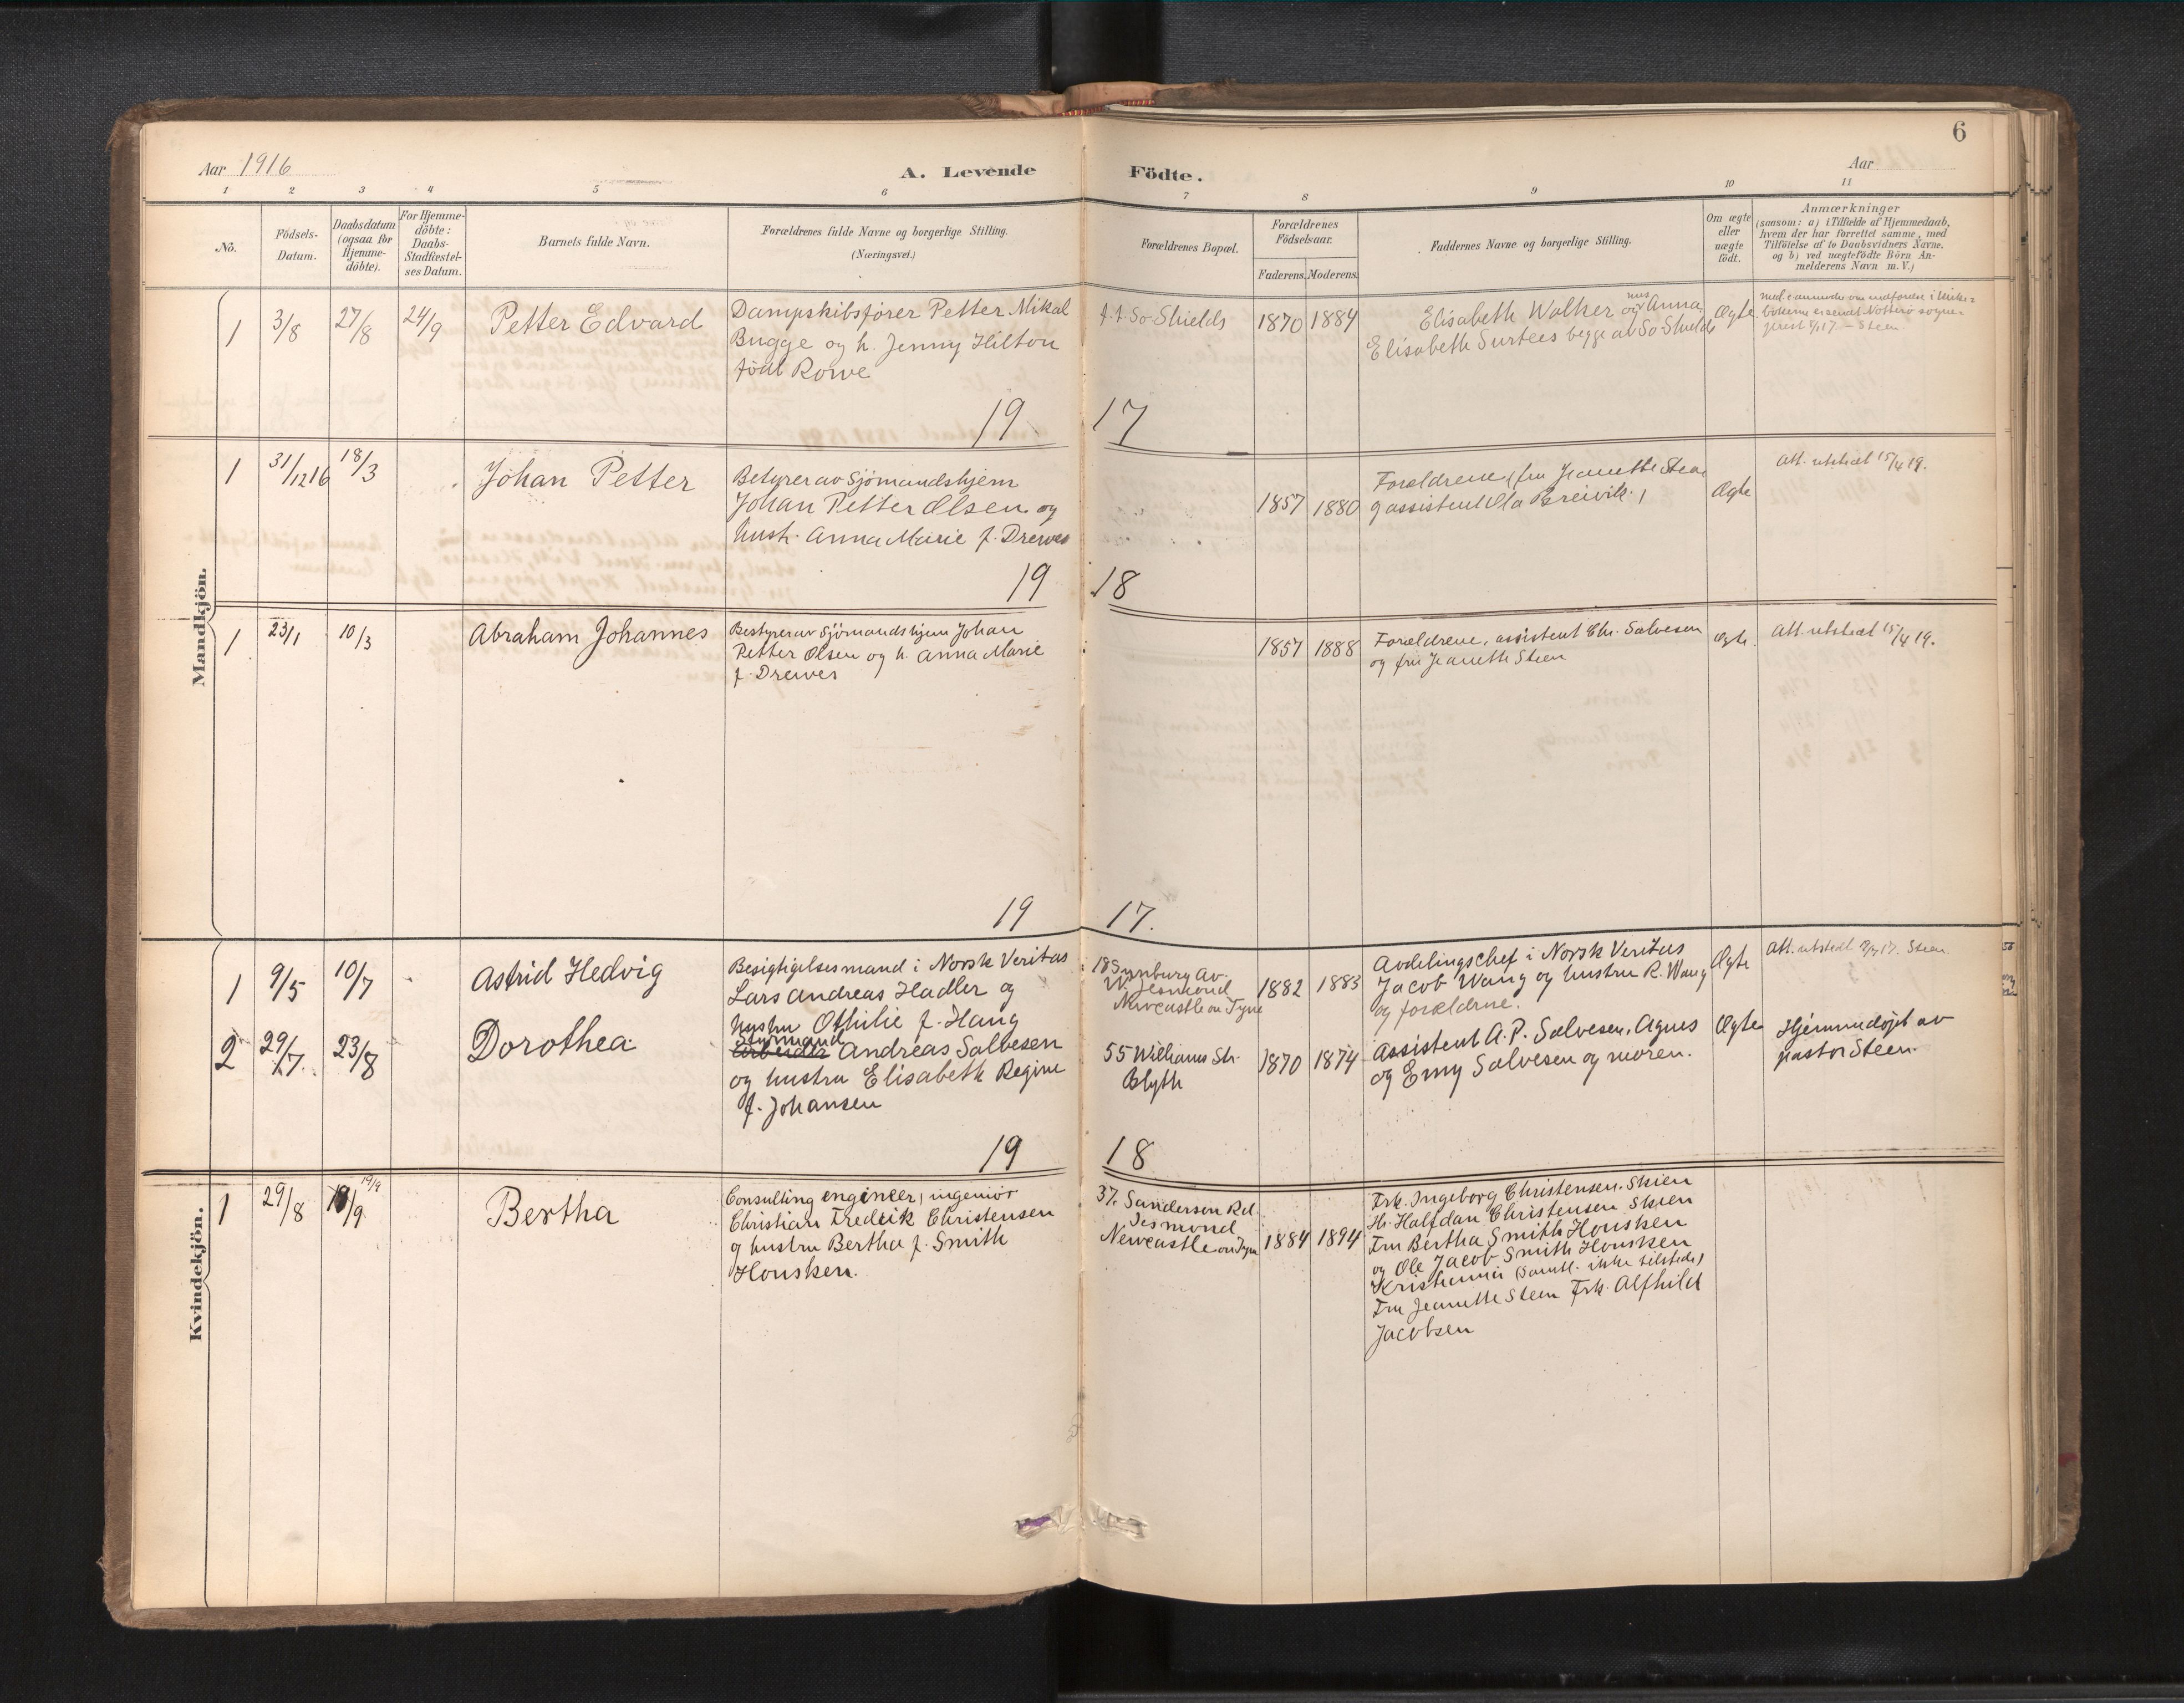 6
Aar 1916
A. Levende
Födte.
Aar
1
2
3
4
5
6
7
8
9
10
11
Nô.
Födsels-
Datum.
Daabsdatum
(ogsaa for
Hjemme-
döbte).
For Hjemme-
döbte:
Daabs-
Stadfæstel-
ses Datum.
Barnets fulde Navn.
Forældrenes fulde Navne og borgerlige Stilling.
(Næringsvei.)
Forældrenes Bopæl.
Forældrenes
Födselsaar.
Faderens.
Moderens.
Faddernes Navne og borgerlige Stilling.
Om ægte
eller
uægte
födt.
Anmærkninger
(saasom: a) i Tilfælde af Hjemmedaab,
hvem der har forrettet samme, med
Tilföielse af to Daabsvidners Navne.
og b) ved uægtefödte Börn An-
melderens Navn m. V.)
Mandkjön.
1
3/8
27/8
24/9
Petter Edvard
Dampskibsfører Petter Mikal
Bugge og h. Jenny Hilton
född Rowe
f. t. So Shields
1870
1884
Elisabeth Walker og mrs Anna
Elisabeth Surtees begge av So Shields
Ægte
19 17
1
31/12 16
18/3
Johan Petter
Betyrer av Sjömandshjem
Johan Petter Olsen og
hust. Anna Marie f. Drewes
1857
1880
Forældrene, (fru Jeanette Steen
og assistent Ola Breivik.)
Ægte
Att. utstedt 15/4 19.
19 18
1
23/1
10/3
Abraham Johannes
Bestyrer av Sjömandshjem Johan
Petter Olsen og h. Anna Marie
f. Drewes
1857
1888
Forældrene, assistent Chr. Salvesen
og fru Jeanette Steen
Ægte.
Att. utstedt 15/4 19.
19 17.
Kvindekjön.
1
9/5
10/7
Astrid Hedvig
Besigtigelsesmand i Norsk Veritas
Lars Andreas Hadler og
hustru Othilie f. Haug
W. Jesmond
Newcastle on Tyne
1882
1883
Avdelingschef i Norsk Veritas
Jacob Wang og hustru R. Wang
og forældrene.
Ægte
Att. utstedt 17. Steen
2
29/7.
23/8
Dorothea
Styrmand
Arbeider Andreas Salvesen
og hustru Elisabeth Regine
f. Johansen
55 Williams Str.
Blyth
1870
1874
Assistent A. P. Salvesen, Agnes
og Emy Salvesen og moren.
Ægte
Hjemmedøpt av
pastor Steen.
19 18
1
29/8
19/9
19/9
Bertha
Consulting engineer, ingeniør
Christian Fredrik Christensen
og hustru Bertha f. Smith
Housken.
37. Sanderson Rd.
Jesmond
Newcastle on Tyne
1884
1894
Frk. Ingeborg Christensen. Skien
Hr. Halfdan Christensen Skien
Fru Bertha Smith Housken
og Ole Jacob Smith Housken
Kristiania (samtl. ikke tilstede)
Fru Jeanette Steen Frk. Alfhild
Jacobsen